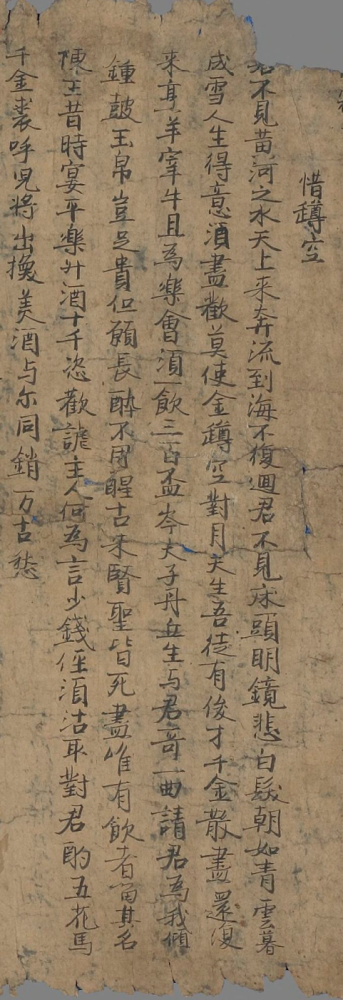 惜罇空
君不見黄河之水天上来奔流到海不復迴君不見床頭明鏡悲白髮朝如青雲暮
成雪人生得意須盡歡莫使金罇空對月天生吾徒有俊才千金散盡還復
来烹羊宰牛且為樂會須一飲三百盃岑夫子丹丘生与君哥一曲請君為我傾
鍾皷玉帛豈足貴但願長醉不用醒古来賢聖皆死盡唯有飲者留其名
陳王昔時宴平樂斗酒十千恣歡謔主人何為言少錢俓須沽取對君酌五花馬
千金裘呼兒將出換美酒与尔同銷万古愁